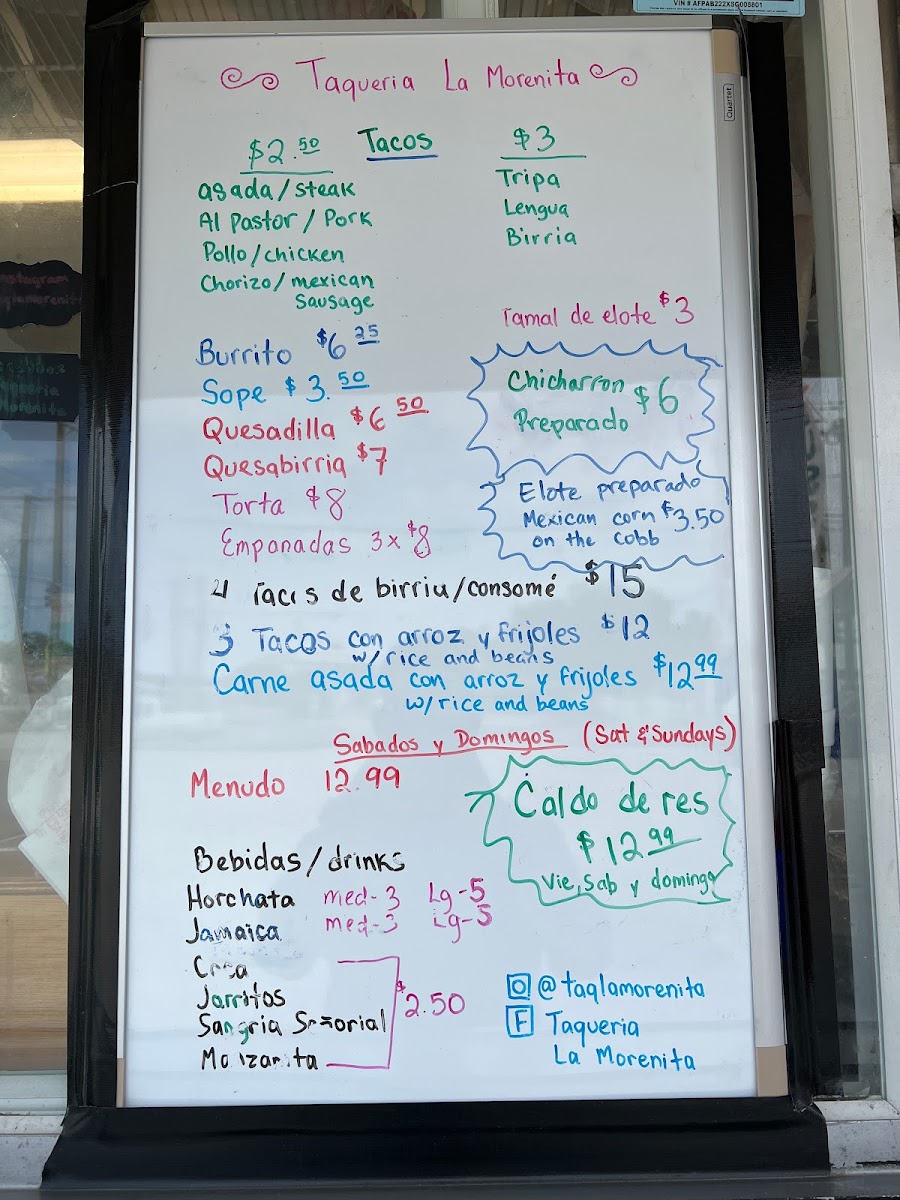 VIN # AFPAB222XSG005801
Taqueria La Morenita
Quartet
Tacos
$2.50
asada/steak
Al Pastor / Pork
Pollo/chicken
Chorizo/mexican
Sausage
$3
Tripa
Lengua
Birria
Tamal de elote $3
Burrito $6 25
Sope $3.50
Quesadilla $6 50
Quesabirria $7
Torta $8
Empanadas 3x $8
Chicharron
Preparado $6
Elote preparado
Mexican corn $3.50
on the cobb
4 Tacos de birria/consomé $15
3 Tacos con arroz y frijoles $12
w/rice and beans
Carne asada con arroz y frijoles $12 99
w/rice and beans
Sabados y Domingos (Sat & Sundays)
Menudo 12.99
Caldo de res
$12 99
Vie, Sab y domingo
Bebidas/drinks
Horchata med-3 Lg-5
Jamaica med-3 Lg-5
Jarritos
Sangria Señorial
Manzanita
$2.50
@taqlamorenita
F Taqueria
La Morenita